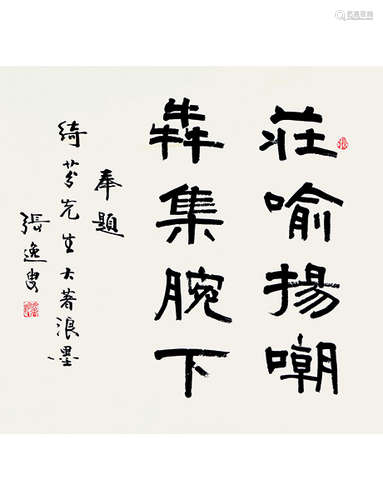 莊喻揚嘲
犇集腕下
奉題
綺芬先生大著浪墨
張逸叟